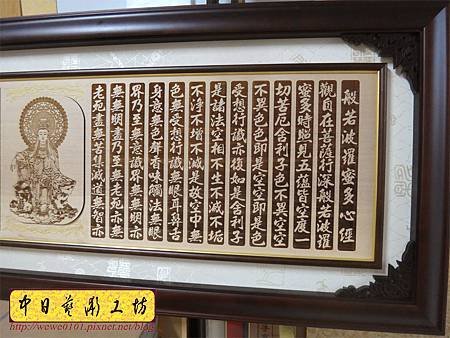 般若波羅蜜多心經
觀自在菩薩行深般若波羅
蜜多時照見五蘊皆空度一
切苦厄舍利子色不異空空
不異色色即是空空即是色
受想行識亦復如是舍利子
是諸法空相不生不滅不垢
不淨不增不減是故空中無
色無受想行識無眼耳鼻舌
身意無色聲香味觸法無眼
界乃至無意識界無無明亦
無無明盡乃至無老死亦無
老死盡無苦集滅道無智亦
中日藝彫工坊
http://wewe0101.pixnet.net/blog